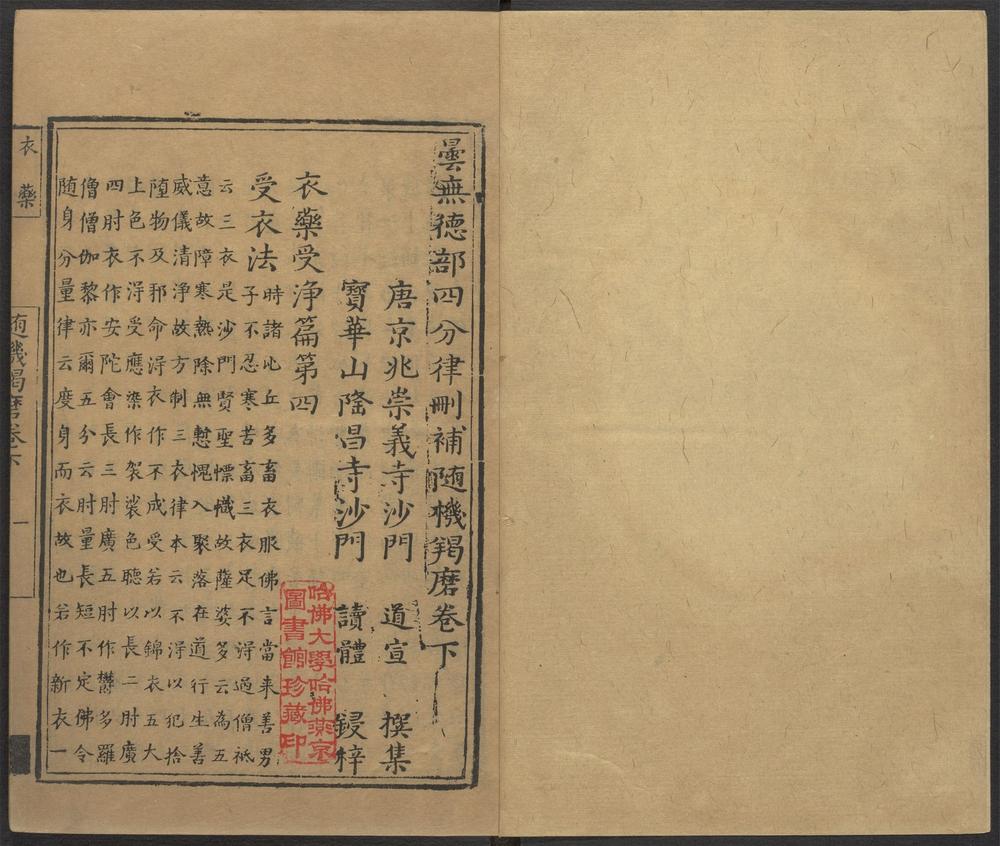 曇無徳部四分律刪補随機羯磨卷下
唐京兆崇義寺沙門 道宣 撰集
寶華山隆昌寺沙門 讀體 鋟梓
衣藥受淨篇第四
受衣法 時諸比丘多畜衣服佛言當来善男
子不忍寒苦畜三衣足不淂過僧祇
云三衣是沙門賢聖幖幟故薩婆多云為五
意故障寒熱除無慙愧入聚落在道行生善
威儀清淨故方制三衣律本云不淂以犯捨
墮物及邪命淂衣作不成受若以錦衣五大
上色不淂受應染作袈裟色聽以長二肘廣
四肘衣作安陀會長三肘廣五肘作鬱多羅
僧僧伽黎亦爾五分云肘量長短不定佛令
随身分量律云度身而衣故也若作新衣一
哈佛大學哈佛燕京
圖書館珍藏印
衣藥
随機羯磨卷下
一